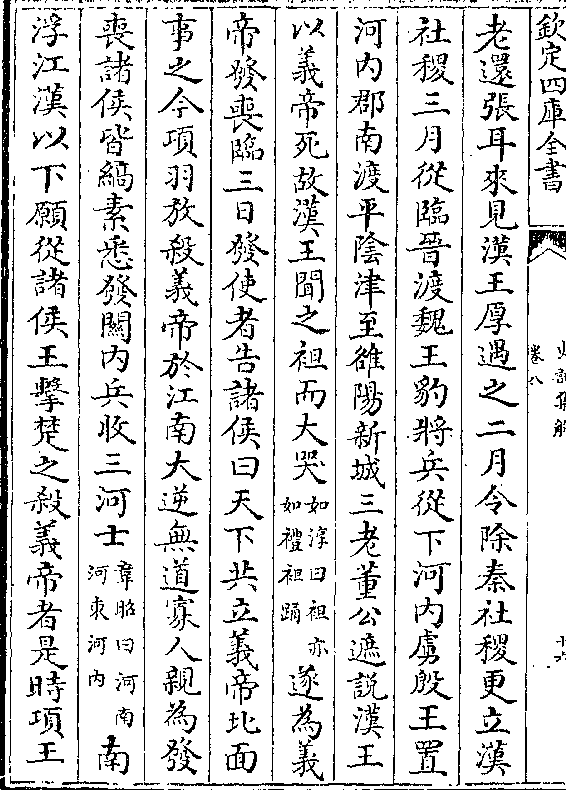 欽定四庫全書
史記集解
卷八
十六
老還張耳來見漢王厚遇之二月令除秦社稷更立漢
社稷三月從臨晉渡魏王豹將兵從下河內虜殷王置
河內郡南渡平陰津至雒陽新城三老董公遮說漢王
以義帝死故漢王聞之袒而大哭如淳曰袒亦如禮袒踊遂為義
帝發喪臨三日發使者告諸侯曰天下共立義帝北面
事之今項羽放殺義帝於江南大逆無道寡人親為發
喪諸侯皆縞素悉發關內兵收三河士韋昭曰河南河東河內南
浮江漢以下願從諸侯王擊楚之殺義帝者是時項王